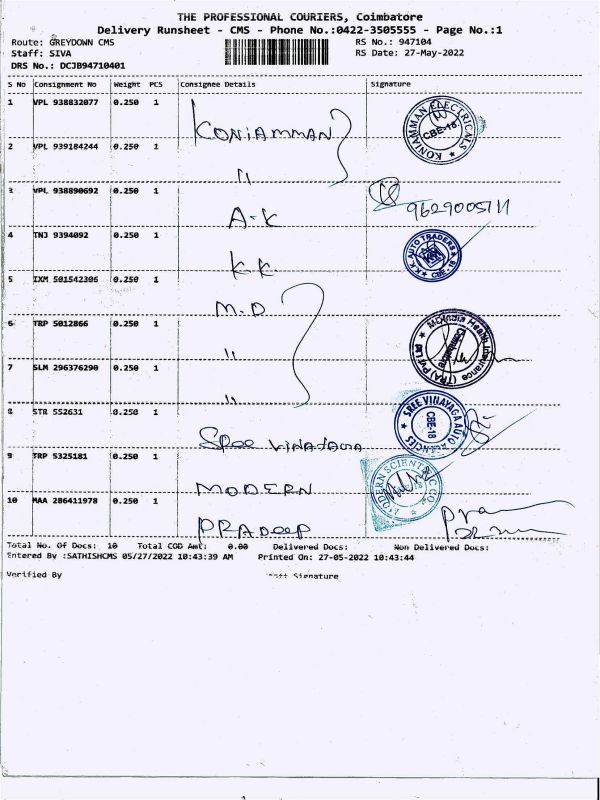 THE PROFESSIONAL COURIERS, Coimbatore
Delivery Runsheet - CMS - Phone No.:0422-3505555 - Page No.:1
Route: GREYDOWN CMS RS No.: 947104
Staff: SIVA RS Date: 27-May-2022
DRS No.: DCJB94710401
S No Consignment No Weight PCS Consignee Details Signature
1 VPL 938832077 0.250 1 KONIAMMAN KONIAMMAN ELECTRICALS CBE-18
2 VPL 939184244 0.250 1 "
3 VPL 938890692 0.250 1 A.K 9629005711
4 TNJ 9394092 0.250 1 K.K. K.K. AUTO TRADERS CBE - 18
5 IXM 501542306 0.250 1 M.D
6 TRP 5012866 0.250 1 " MDIndia Health Insurance (TPA) Pvt Ltd Coimbatore
7 SLM 296376290 0.250 1 "
8 STR 552631 0.250 1 SREE VINAYAGA SREE VINAYAGA AUTO AGENCIES CBE-18
9 TRP 5325181 0.250 1 MODERN MODERN SCIENTIFIC CO.
10 MAA 286411978 0.250 1 PRADEEP
Total No. Of Docs: 10 Total COD Amt: 0.00 Delivered Docs: Non Delivered Docs:
Entered By :SATHISHCMS 05/27/2022 10:43:39 AM Printed On: 27-05-2022 10:43:44
Verified By Staff Signature